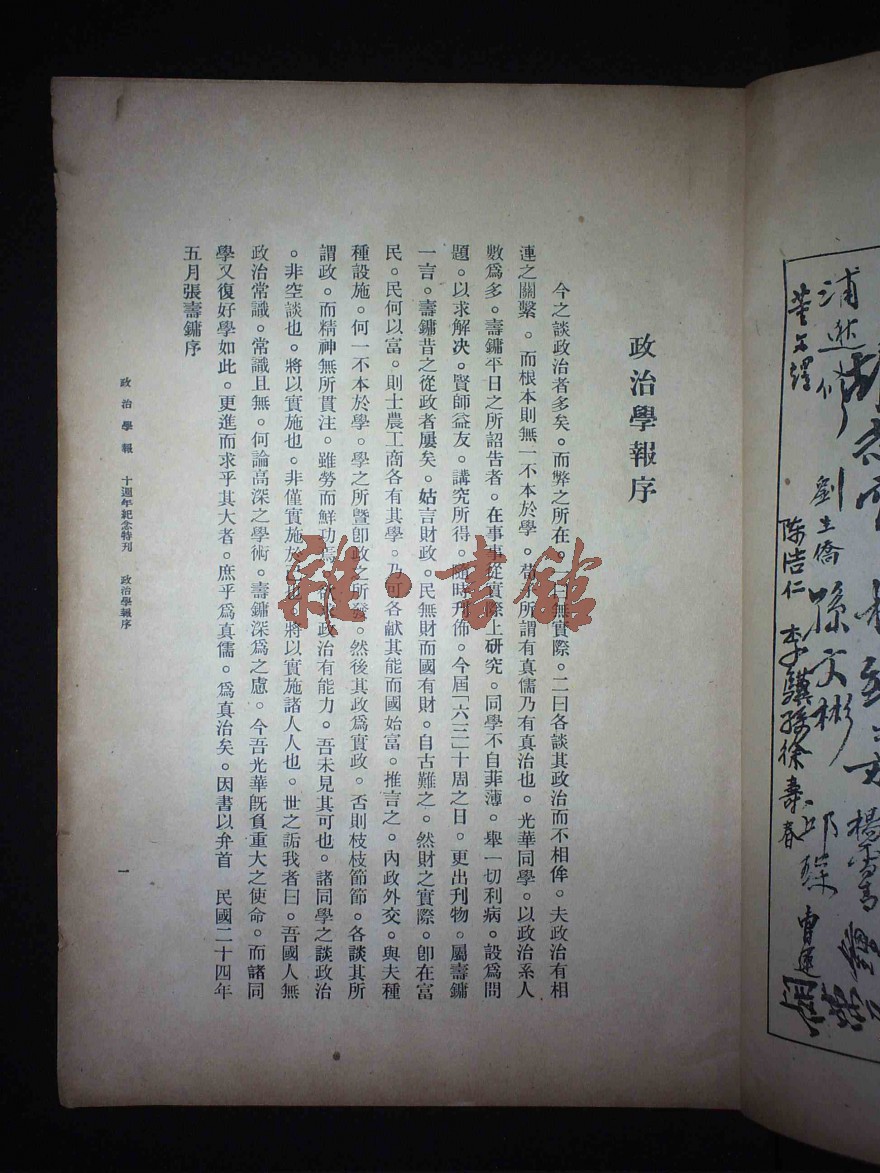 政治學報序
今之談政治者多矣。而弊之所在。一曰無實際。二曰各談其政治而不相侔。夫政治有相
連之關繫。而根本則無一不本於學。昔人所謂有真儒乃有真治也。光華同學。以政治系人
數爲多。壽鏞平日之所詔告者。在事事從實際上研究。同學不自菲薄。舉一切利病。設爲問
題。以求解决。賢師益友。講究所得。隨時刋佈。今屆「六三」十周之日。更出刋物。屬壽鏞
一言。壽鏞昔之從政者屢矣。姑言財政。民無財而國有財。自古難之。然財之實際。卽在富
民。民何以富。則士農工商各有其學。乃可各献其能而國始富。推言之。內政外交。與夫種
種設施。何一不本於學。學之所曁卽政之所發。然後其政爲實政。否則枝枝節節。各談其所
謂政。而精神無所貫注。雖勞而鮮功焉。政治有能力。吾未見其可也。諸同學之談政治
。非空談也。將以實施也。非僅實施於己也。將以實施諸人人也。世之詬我者曰。吾國人無
政治常識。常識且無。何論高深之學術。壽鏞深爲之慮。今吾光華旣負重大之使命。而諸同
學又復好學如此。更進而求乎其大者。庶乎爲真儒。爲真治矣。因書以弁首　民國二十四年
五月張壽鏞序
政治學報　十週年紀念特刊　政治學報序
一
雜·書館
劉生僑
孫文彬
陈浩仁
李驥
徐壽春
邱
曹